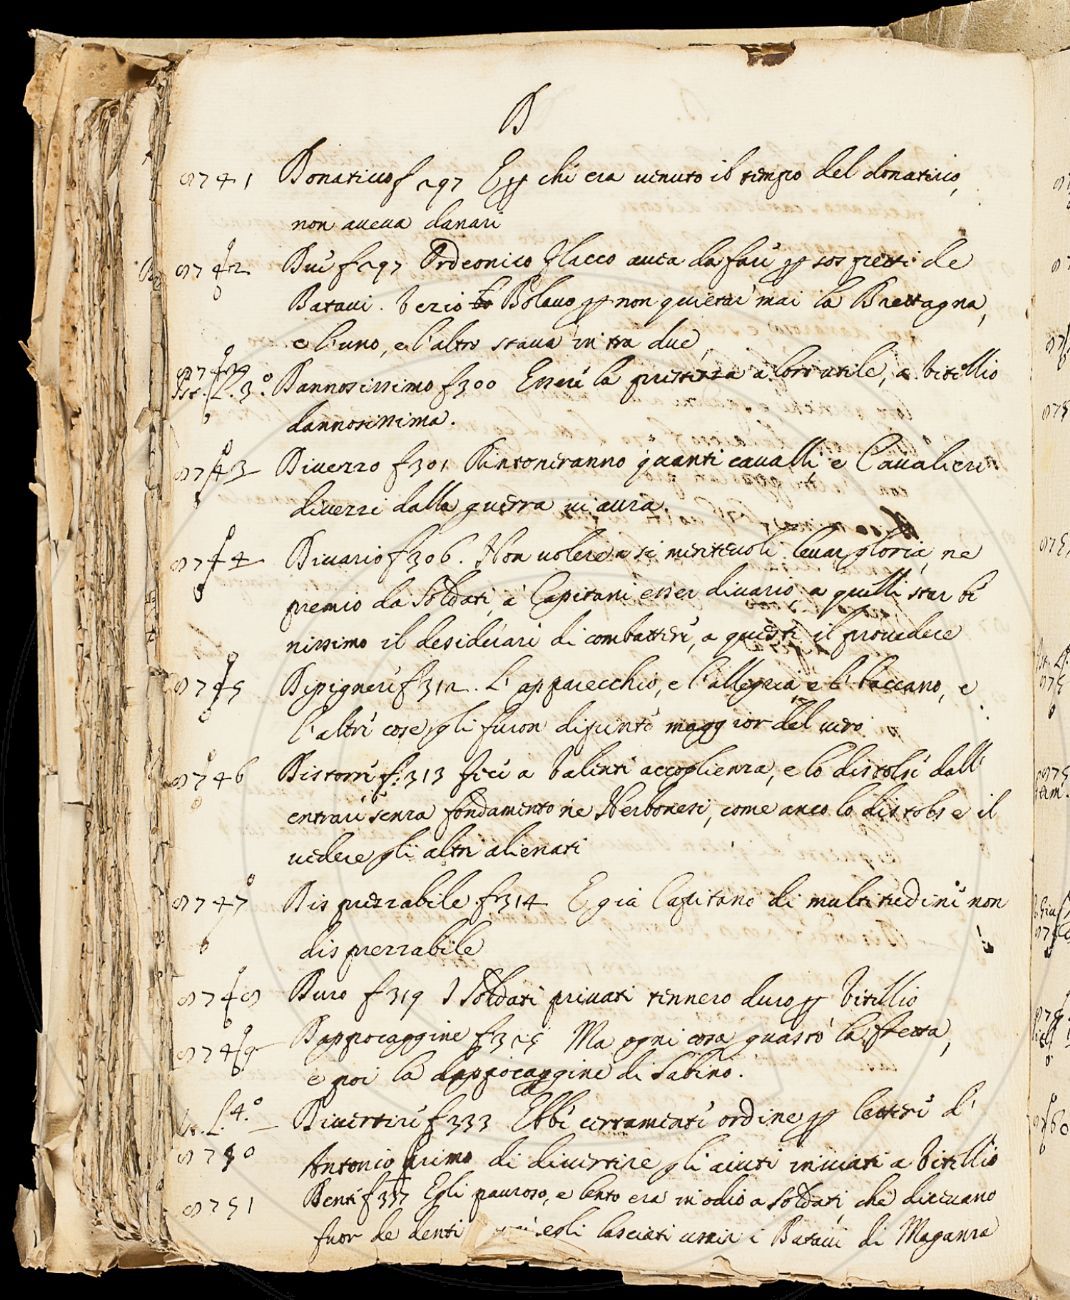 D
8741 Donativo f 297 E p chi era venuto il tempo del donativo,
non aveva danari
8742 Dui f 297 Ordeonico Flacco avea da fare p sospetti de
Batavi. Vezio Bolano p non quietar mai la Brettagna,
e l'uno, e l'altro stava in tra due,
St. L. 3.º Dannosissimo f 300 Essere la prestezza a loro utile, a Vitellio
dannosissima.
8743 Divezzo f 301 Rintoneranno quanti cavalli, e Cavalieri
divezzi dalla guerra vi avrà.
8744 Divario f 306. Non volere a sì meritevoli levar gloria, ne
premio da Soldati, a Capitani esser divario, a quelli star be
nissimo il desiderare di combattere, a questi il provedere
8745 Dipignere f 312. L'apparecchio, e l'allegria, e 'l baccano, e
l'altre cose gli furon dipinte maggior del vero
8746 Distorre f. 313 Fece a Valente accoglienza, e lo distolse dall'
entrare senza fondamento ne Nerbonesi, come anco lo distolse il
vedere gli altri alienati
8747 Disprezzabile f 314 E già Capitano di moltitudine non
disprezzabile
8748 Duro f 319 I Soldati privati tennero duro p Vitellio
8749 Dappocaggine f 325 Ma ogni cosa guastò la fretta,
e poi la dappocaggine di Sabino.
St. L. 4.º Divertire f 333 Ebbe veramente ordine p lettere d'
8750 Antonio primo di divertire gli aiuti inviati a Vitellio
8751 Denti f 337 Egli pauroso, e lento era in odio a Soldati che dicevano
fuor de denti egli lasciati uscir i Batavi di Maganza